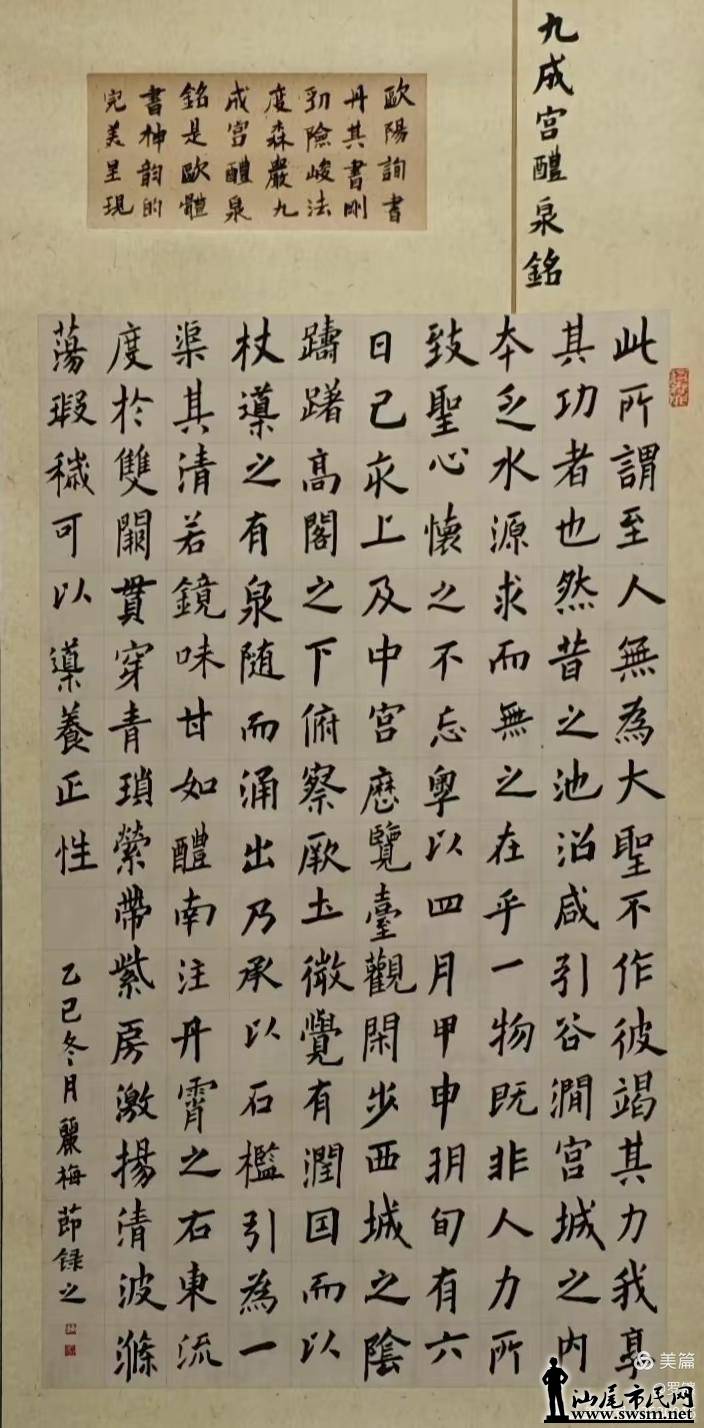 九成宫醴泉銘
歐陽詢書
丹其書剛
劲險峻法
度森嚴九
成宫醴泉
銘是歐體
書神韵的
完美呈現
此所謂至人無為大聖不作彼竭其力我享
其功者也然昔之池沼咸引谷澗宫城之内
本乏水源求而無之在乎一物既非人力所
致聖心懷之不忘粤以四月甲申朔旬有六
日己亥上及中宫歷覽臺觀閑步西城之陰
躊躇高閣之下俯察厥土微覺有潤因而以
杖導之有泉随而涌出乃承以石檻引為一
渠其清若鏡味甘如醴南注丹霄之右東流
度於雙闕貫穿青瑣縈帶紫房激揚清波滌
蕩瑕穢可以導養正性
乙巳冬月麗梅節録之
美篇
汕尾市民网
www.swsm.net